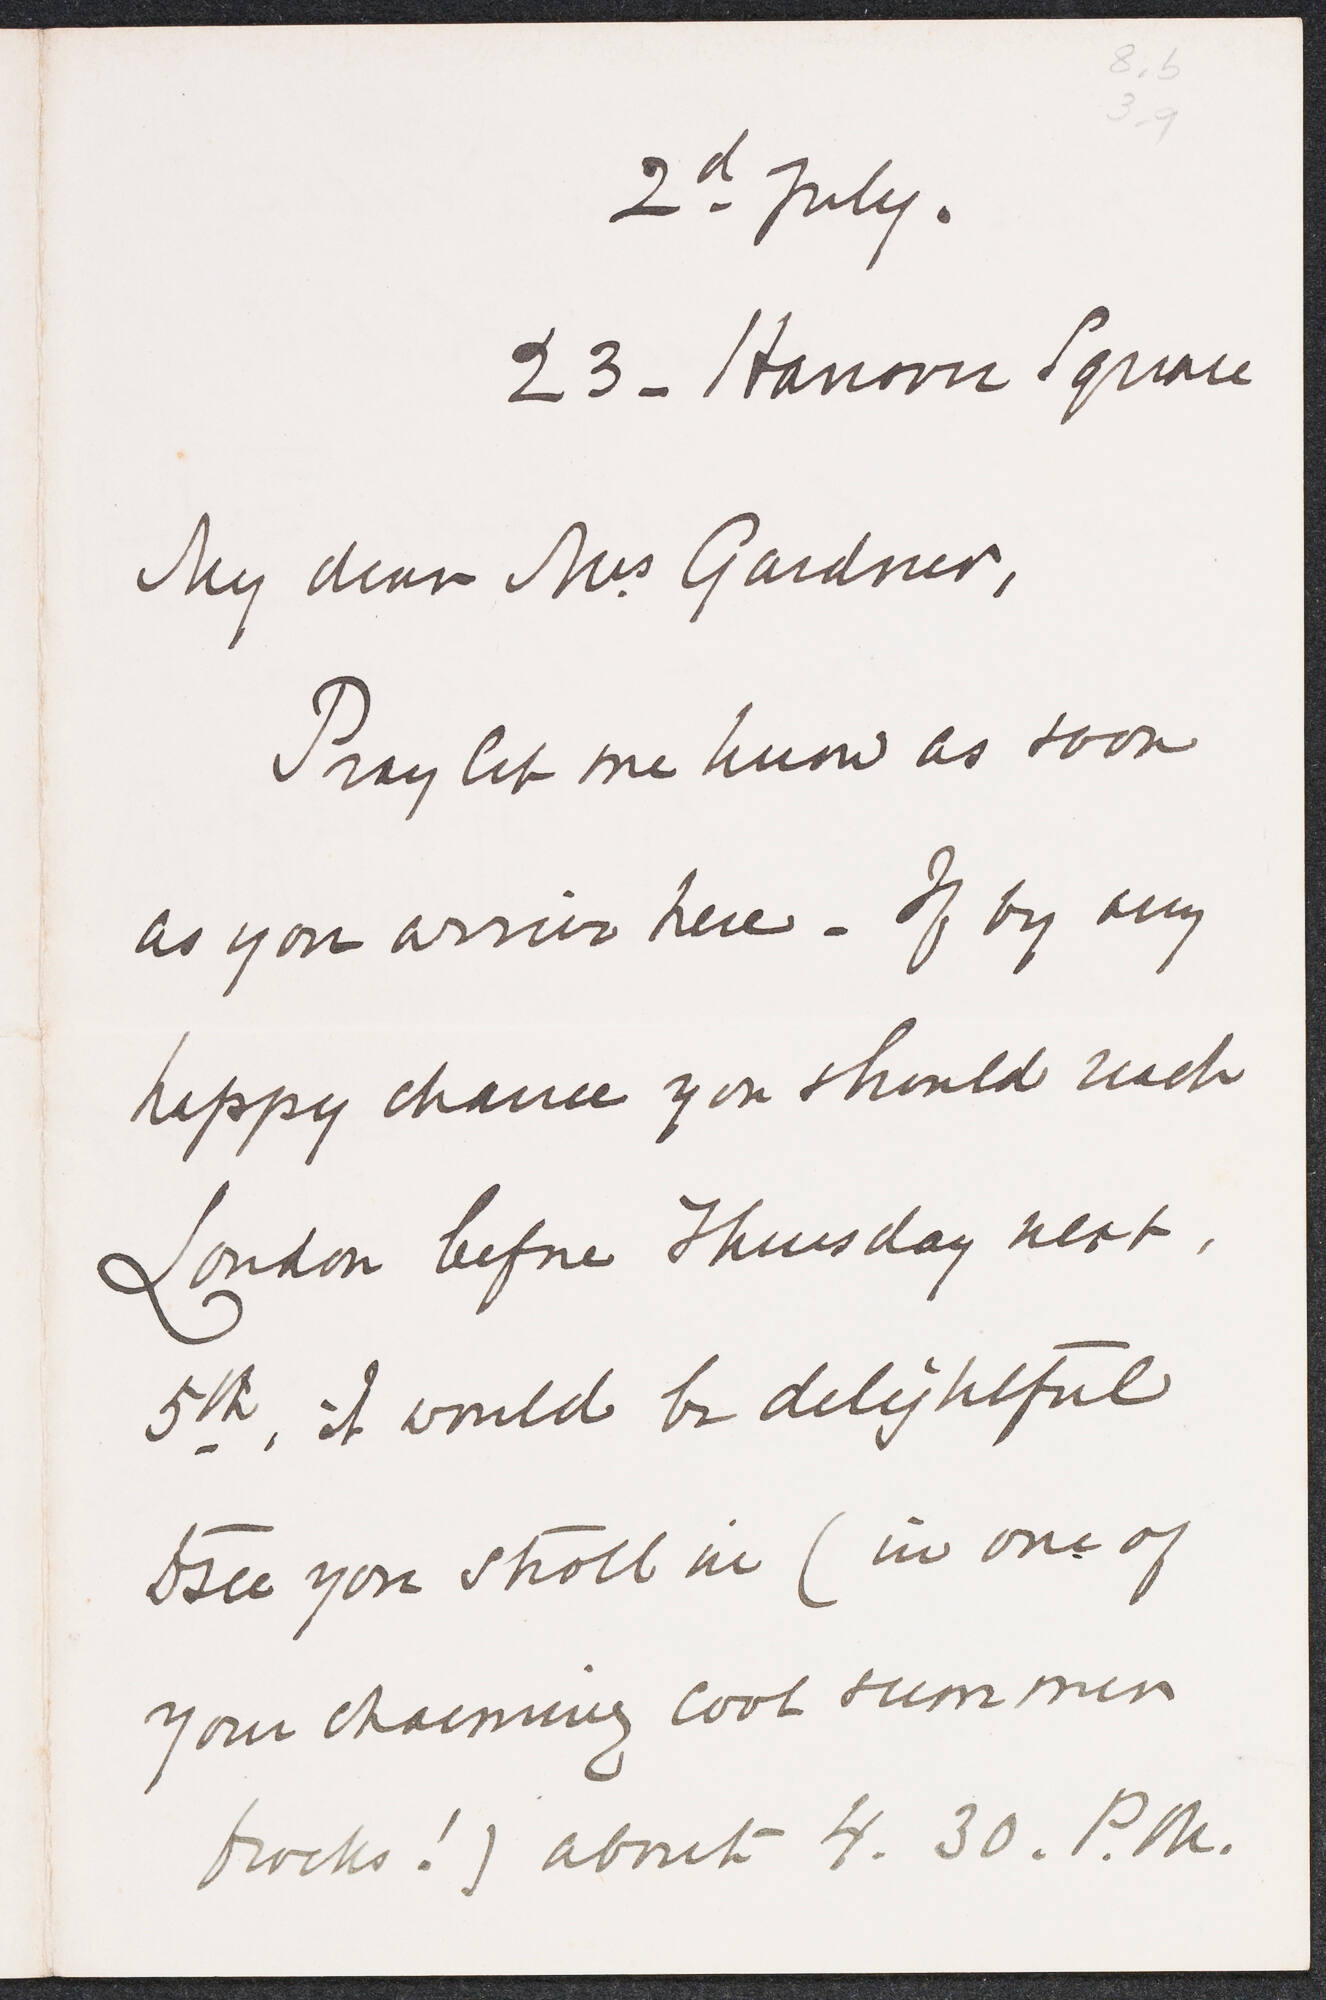 8.6
3.9
2d July.
23 - Hanover Square
My dear Mrs Gardner,
Pray let me know as soon
as you arrive here - If by any
happy chance you should reach
London before Thursday next,
5th, it would be delightful
to see you stroll in (in one of
your charming cool summer
frocks!) about 4.30. P.M.